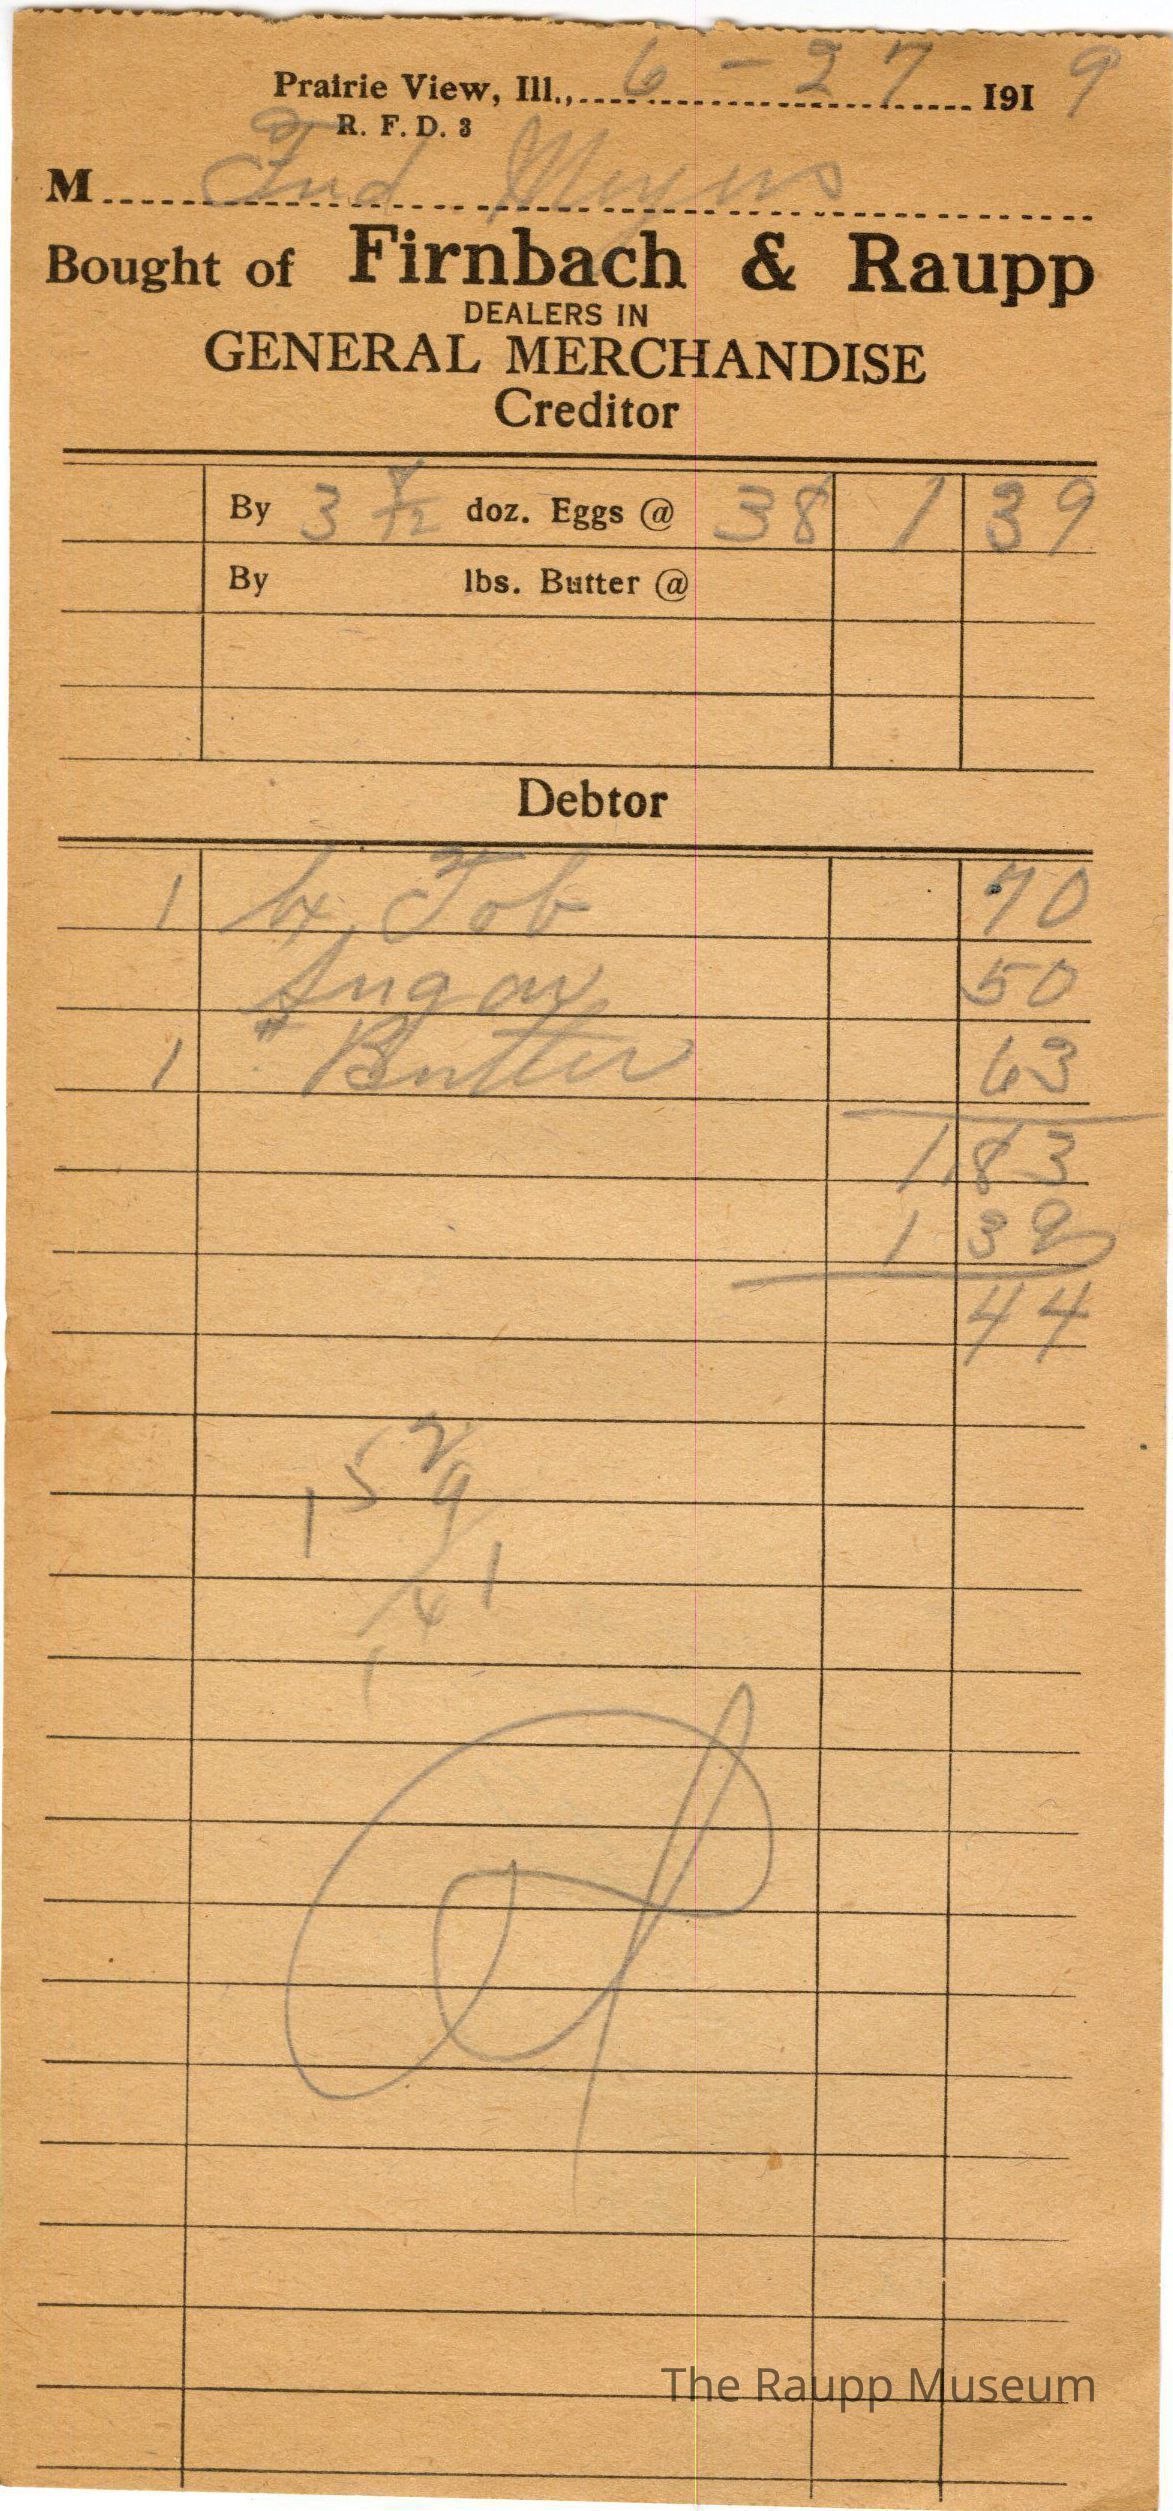 Prairie View, Ill., 6 - 27 1919
R. F. D. 3
M Fred Meyers
Bought of Firnbach & Raupp
DEALERS IN
GENERAL MERCHANDISE
Creditor
By 3 8/12 doz. Eggs @ 38 1 39
By lbs. Butter @
Debtor
1 Tob 70
Sugar 50
1 # Butter 63
1.83
1 39
44
The Raupp Museum